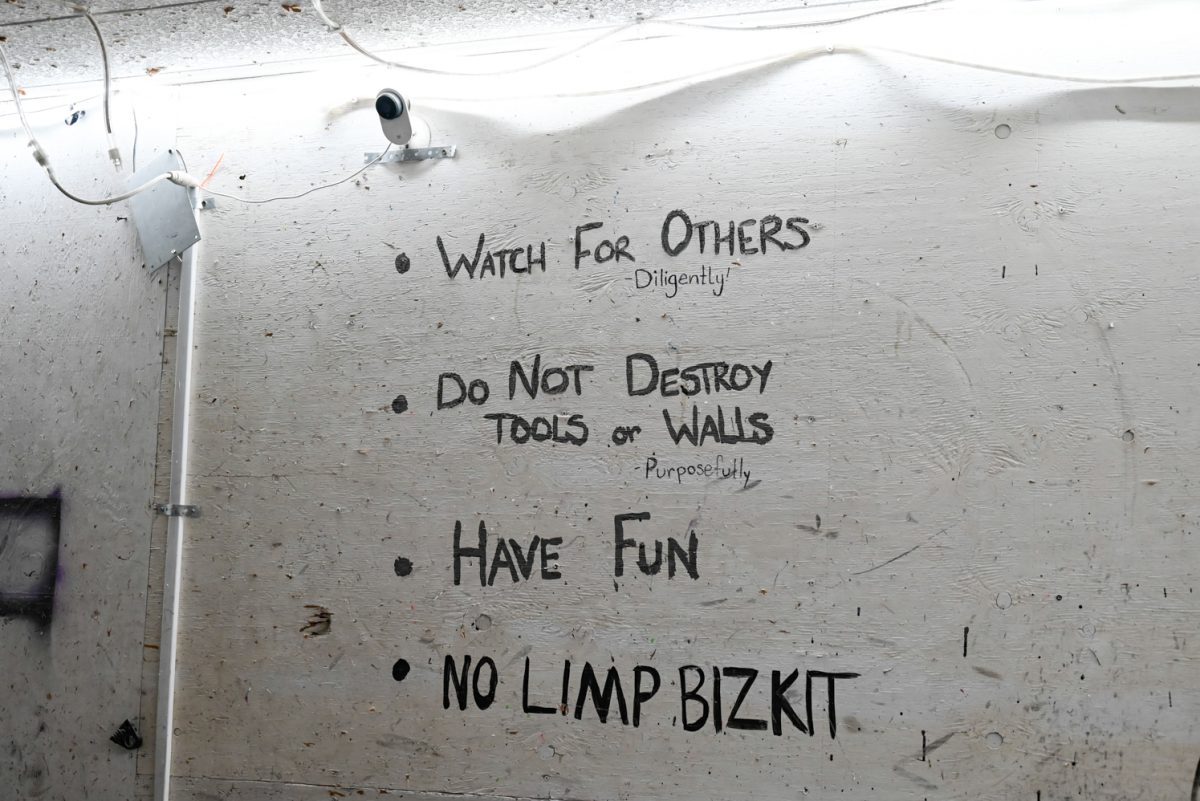 • Watch For Others
-Diligently!
• Do Not Destroy
Tools or Walls
-Purposefully
• Have Fun
• NO LIMP BIZKIT